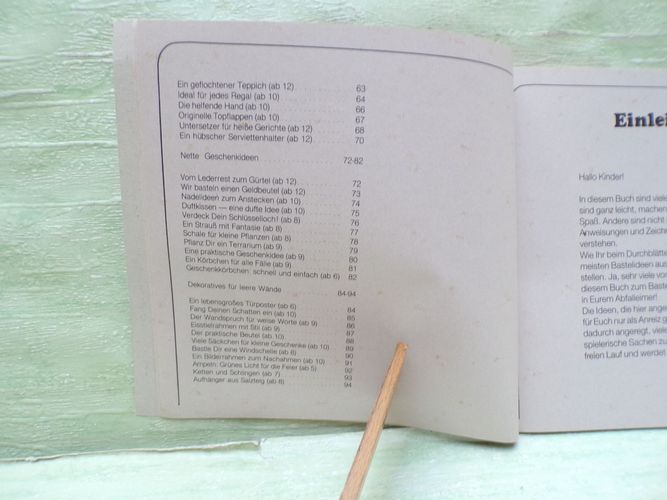 Ein geflochtener Teppich (ab 12) 63
Ideal für jedes Regal (ab 10) 64
Die helfende Hand (ab 10) 66
Originelle Topflappen (ab 10) 67
Untersetzer für heiße Gerichte (ab 12) 68
Ein hübscher Serviettenhalter (ab 12) 70
Nette Geschenkideen 72-82
Vom Lederrest zum Gürtel (ab 12) 72
Wir basteln einen Geldbeutel (ab 12) 73
Nadelideen zum Anstecken (ab 10) 74
Duftkissen — eine dufte Idee (ab 10) 75
Verdeck Dein Schlüsselloch! (ab 8) 76
Ein Strauß mit Fantasie (ab 8) 77
Schale für kleine Pflanzen (ab 8) 78
Pflanz Dir ein Terrarium (ab 9) 79
Eine praktische Geschenkidee (ab 9) 80
Ein Körbchen für alle Fälle (ab 9) 81
Geschenkkörbchen, schnell und einfach (ab 6) 82
Dekoratives für leere Wände 84-94
Ein lebensgroßes Türposter (ab 6) 84
Fang Deinen Schatten ein (ab 10) 85
Der Wandspruch für weise Worte (ab 9) 86
Eisstielrahmen mit Stil (ab 9) 87
Der praktische Beutel (ab 10) 88
Viele Säckchen für kleine Geschenke (ab 10) 89
Bastle Dir eine Windschelle (ab 8) 90
Ein Bilderrahmen zum Nachahmen (ab 10) 91
Ampeln: Grünes Licht für die Feier (ab 5) 92
Ketten und Schlingen (ab 7) 93
Aufhänger aus Salzteig (ab 8) 94
Einlei
Hallo Kinder!
In diesem Buch sind viele
sind ganz leicht, machen
Spaß. Andere sind nicht
Anweisungen und Zeich
verstehen.
Wie Ihr beim Durchblätte
meisten Bastelideen aus
stellen. Ja, sehr viele vo
diesem Buch zum Baste
in Eurem Abfalleimer!
Die Ideen, die hier ange
für Euch nur als Anreiz g
dadurch angeregt, viele
spielerische Sachen zu
freien Lauf und werdet